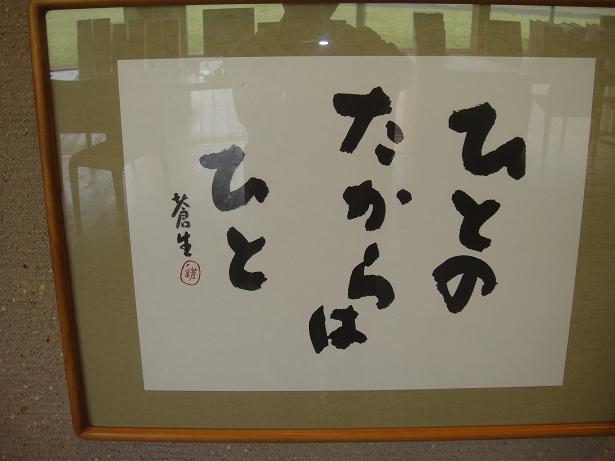 ひとの
たからは
ひと
蒼生